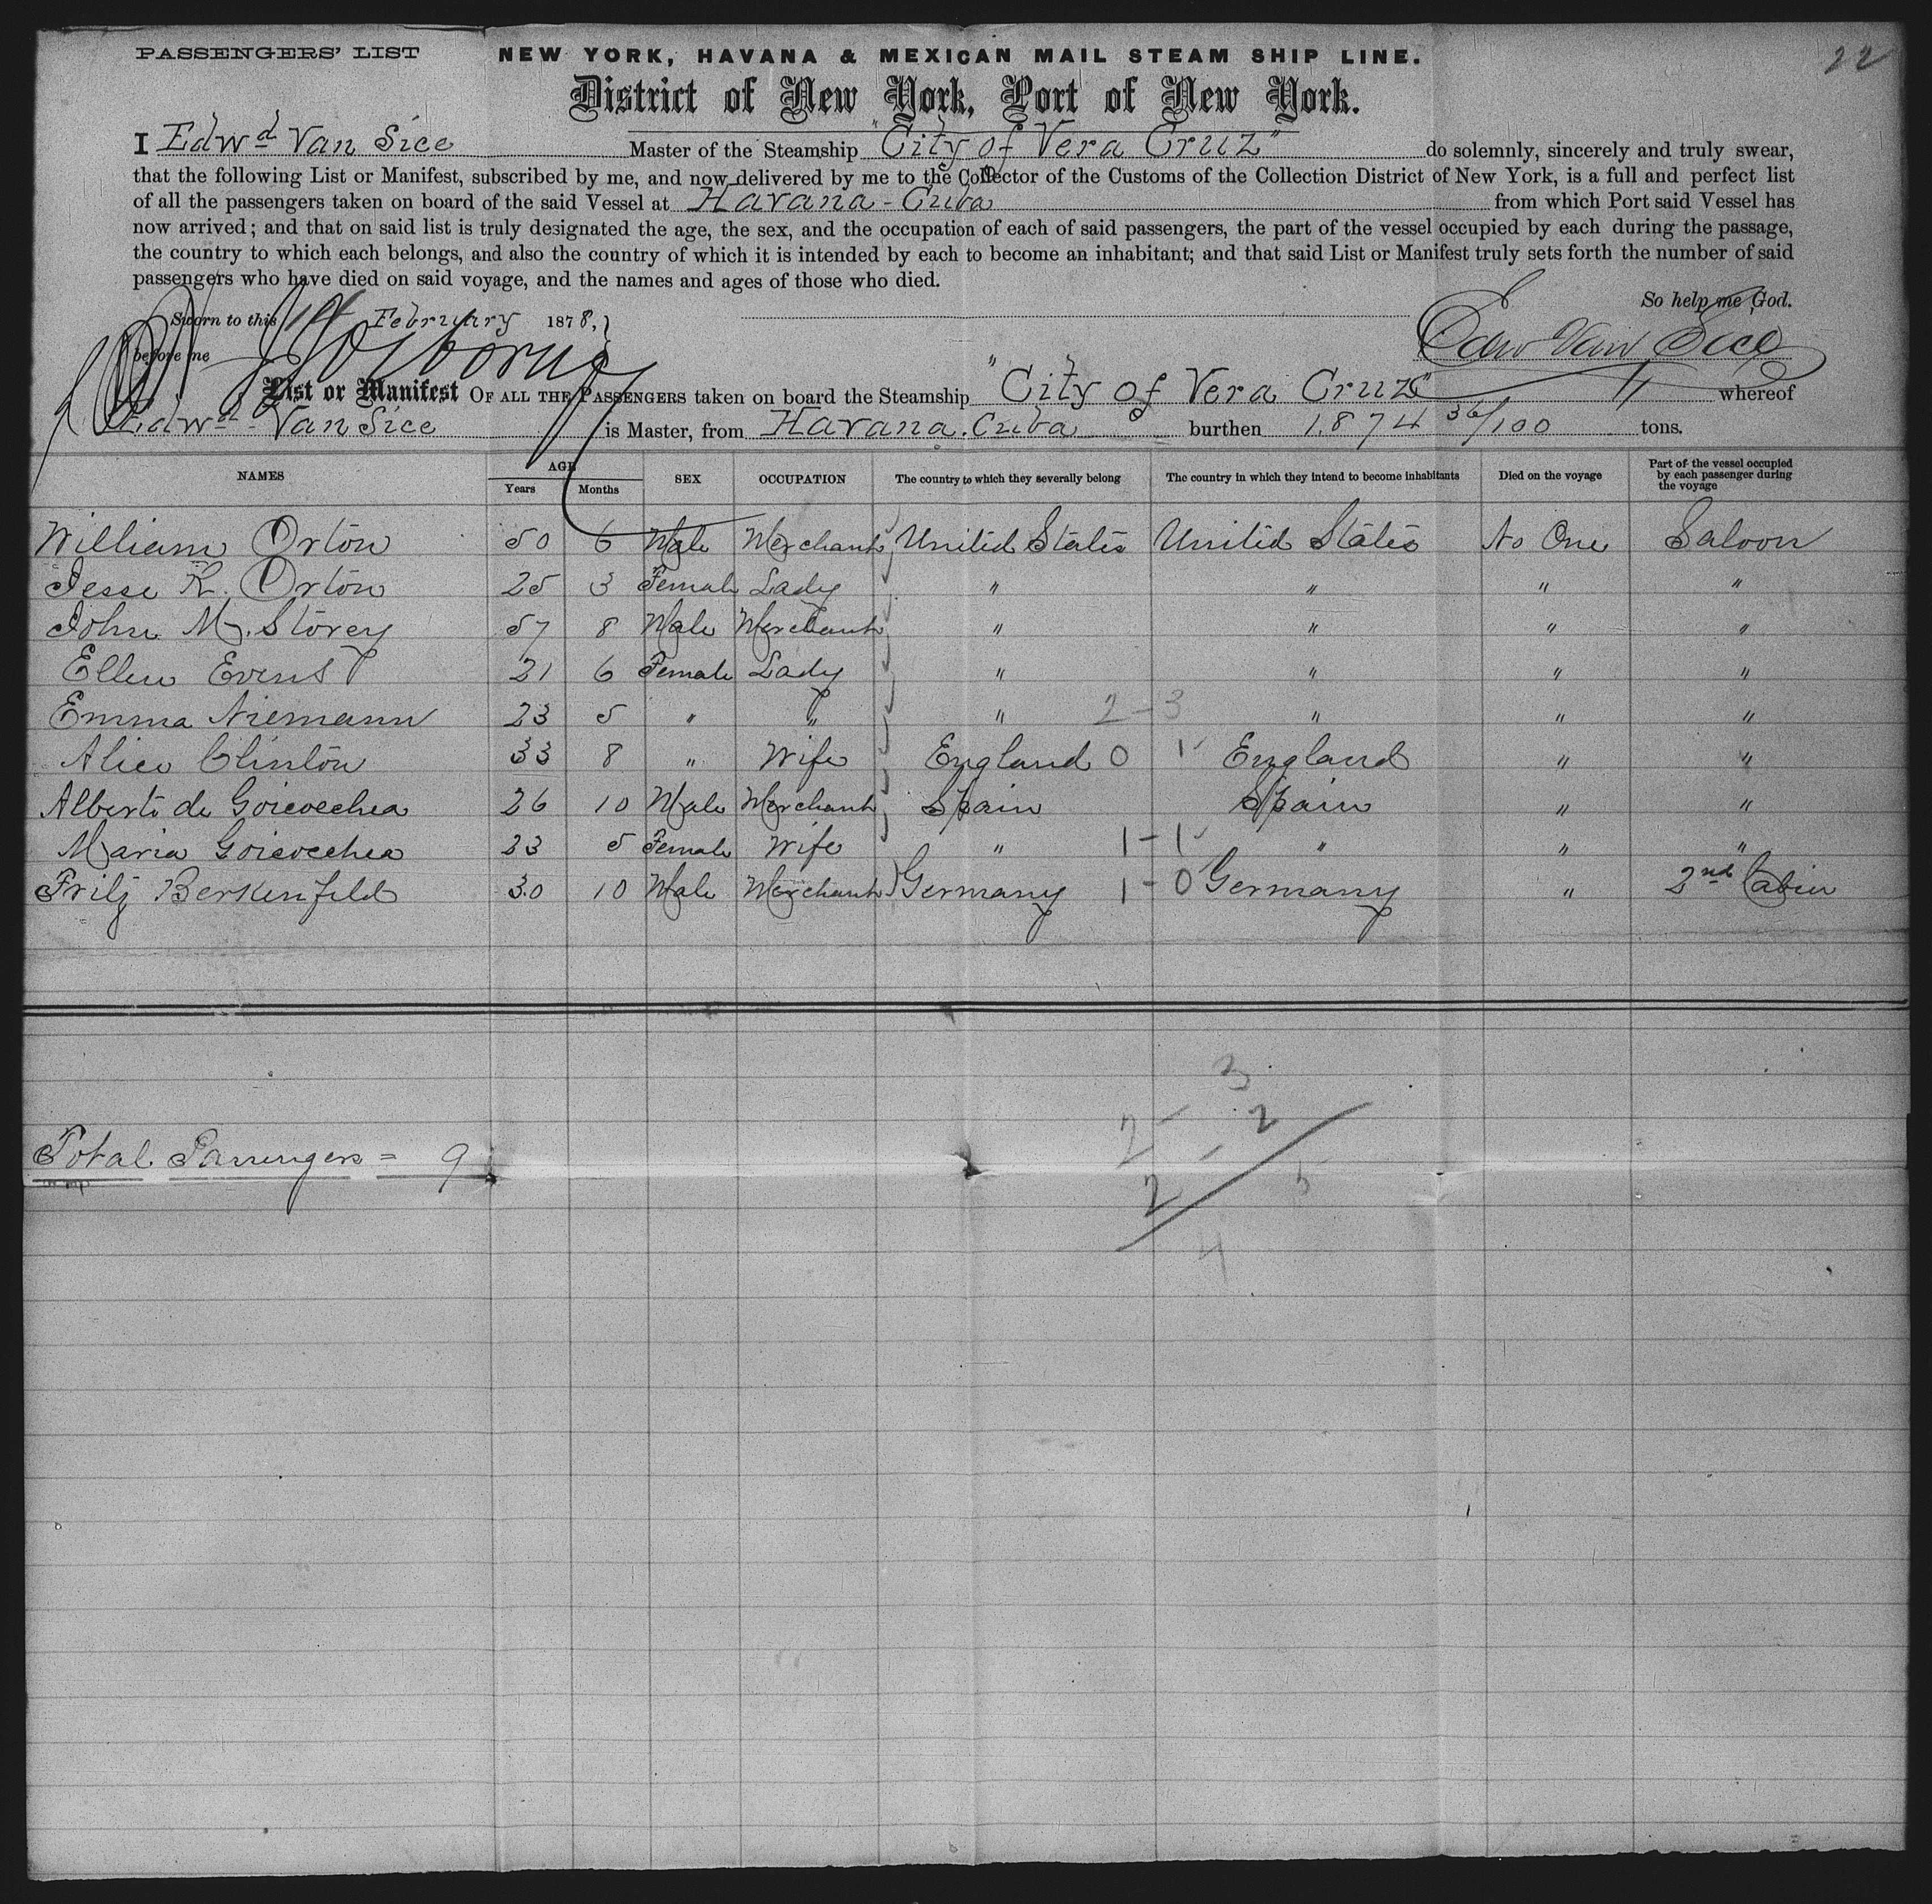 PASSENGERS' LIST NEW YORK, HAVANA & MEXICAN MAIL STEAM SHIP LINE. 22
District of New York, Port of New York.
I Edwd Van Sice Master of the Steamship "City of Vera Cruz" do solemnly, sincerely and truly swear,
that the following List or Manifest, subscribed by me, and now delivered by me to the Collector of the Customs of the Collection District of New York, is a full and perfect list
of all the passengers taken on board of the said Vessel at Havana - Cuba from which Port said Vessel has
now arrived; and that on said list is truly designated the age, the sex, and the occupation of each of said passengers, the part of the vessel occupied by each during the passage,
the country to which each belongs, and also the country of which it is intended by each to become an inhabitant; and that said List or Manifest truly sets forth the number of said
passengers who have died on said voyage, and the names and ages of those who died.
So help me God.
Sworn to this February 1878,
before me Edw Van Sice
List or Manifest OF ALL THE PASSENGERS taken on board the Steamship "City of Vera Cruz" whereof
Edwd Van Sice is Master, from Havana. Cuba burthen 1.874 36/100 tons.
NAMES AGE Years Months SEX OCCUPATION The country to which they severally belong The country in which they intend to become inhabitants Died on the voyage Part of the vessel occupied by each passenger during the voyage
William Orton 50 6 Male Merchant United States United States No One Saloon
Jesse R. Orton 25 3 Female Lady " " " "
John M. Storey 57 8 Male Merchant " " " "
Ellen Evens 21 6 Female Lady " " " "
Emma Niemann 23 5 " " " 2 - 3 " " "
Alice Clinton 33 8 " Wife England 0 1 England " "
Alberto de Goicoechea 26 10 Male Merchant Spain Spain " "
Maria Goicoechea 23 5 Female Wife " 1 - 1 " " "
Fritz Berkenfeld 30 10 Male Merchant Germany 1 - 0 Germany " 2nd Cabin
3
2 - 2
Total Passengers = 9
2 5
4